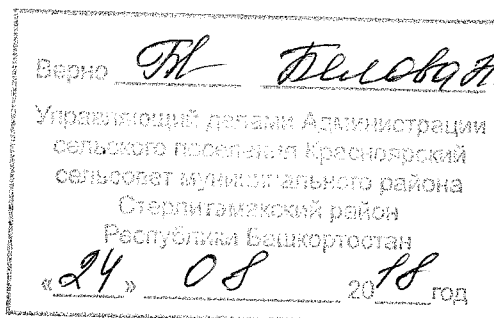 Верно Белова Н
Управляющий делами Администрации
сельского поселения Красноярский
сельсовет муниципального района
Стерлитамакский район
Республики Башкортостан
« 24 » 08 2018 год